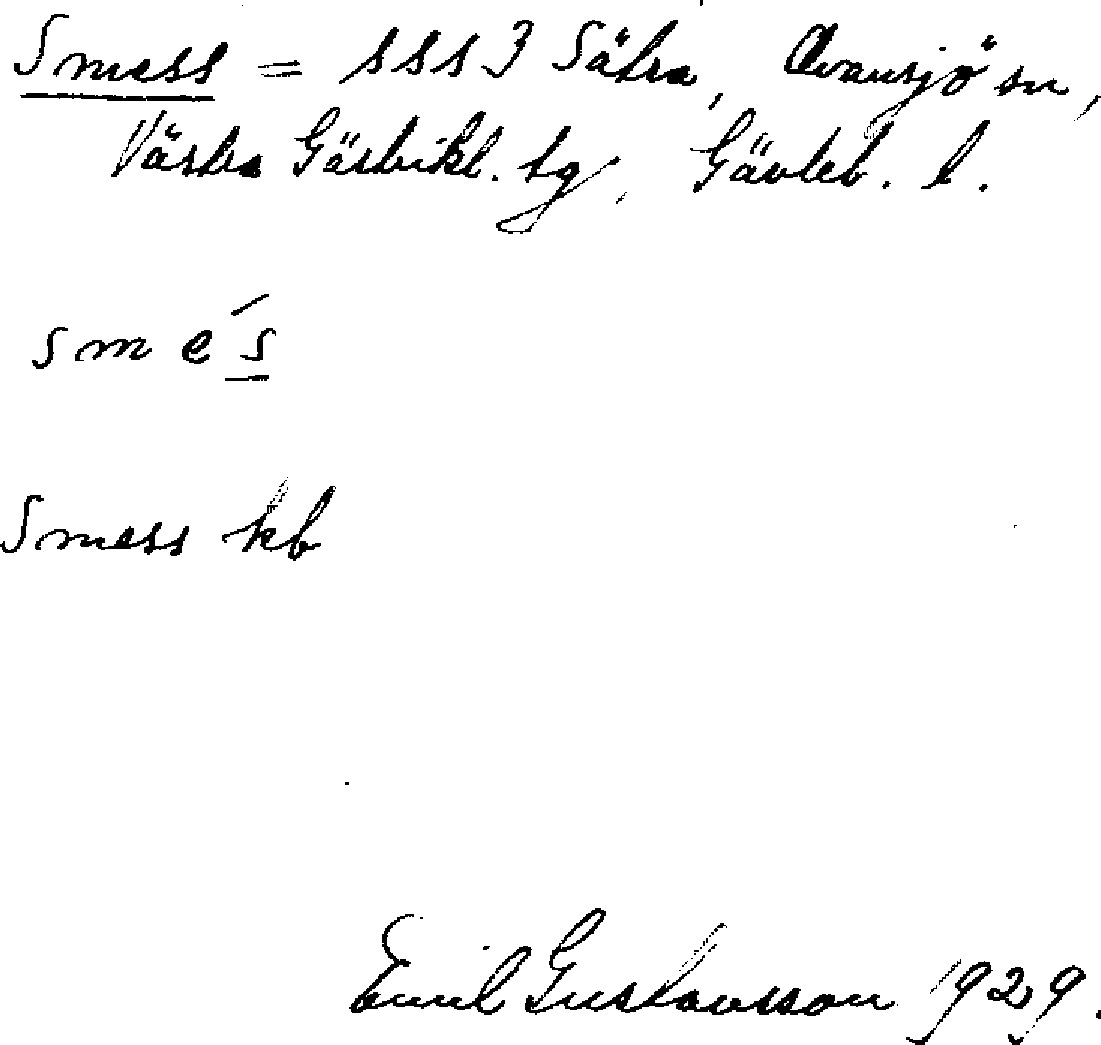 Smess = sss 3 Sätra, Ovansjö sn,
Västra Gästrikl. tg, Gävleb. l.
s m e ́s
Smess kb
Emil Gustavsson 1929.